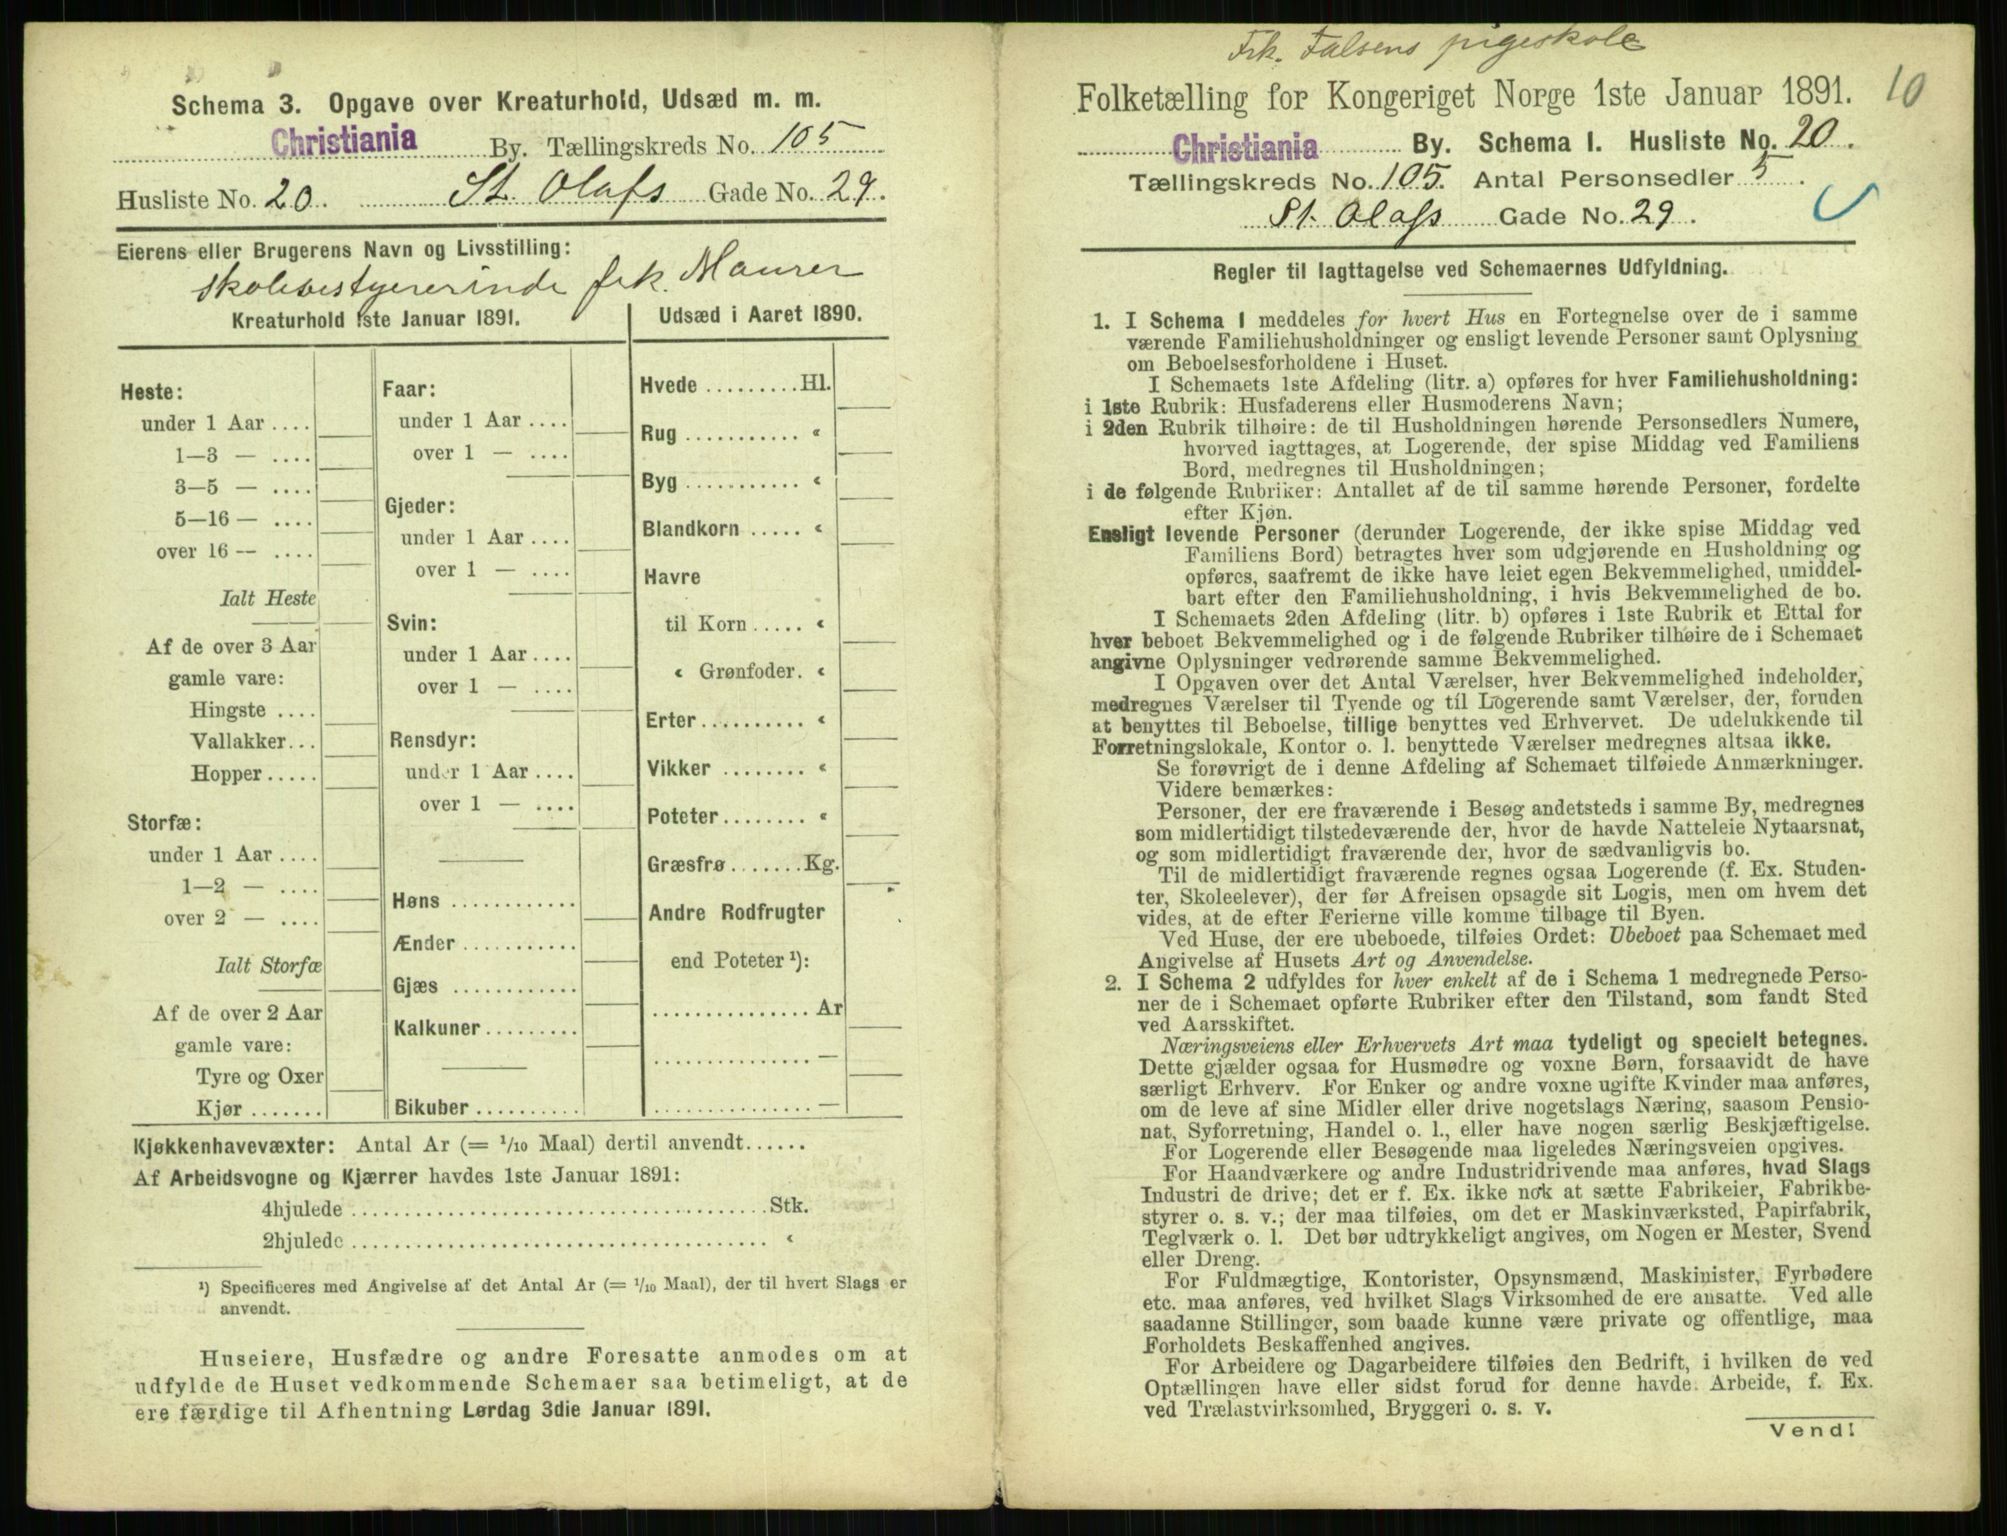 Schema 3. Opgave over Kreaturhold, Udsæd m. m.
Christiania By. Tællingskreds No. 105
Husliste No. 20. St. Olafs Gade No. 29.
Eierens eller Brugerens Navn og Livsstilling:
Skolebestyrerinde frk. Maurer
Kreaturhold 1ste Januar 1891.
Heste:
under 1 Aar ....
1—3 — ....
3—5 — ....
5—16 — ....
over 16 — ....
Ialt Heste
Af de over 3 Aar
gamle vare:
Hingste ....
Vallakker...
Hopper.....
Storfæ:
under 1 Aar ....
1—2 — ....
over 2 — ....
Ialt Storfæ
Af de over 2 Aar
gamle vare:
Tyre og Oxer
Kjør .......
Faar:
under 1 Aar ....
over 1 — ....
Gjeder:
under 1 Aar ....
over 1 — ....
Svin:
under 1 Aar ....
over 1 — ....
Rensdyr:
under 1 Aar ....
over 1 — ....
Høns ............
Ænder ...........
Gjæs ............
Kalkuner.........
Bikuber ..........
Udsæd i Aaret 1890.
Hvede .........Hl.
Rug ........... «
Byg ........... «
Blandkorn ..... «
Havre
til Korn ..... «
« Grønfoder. «
Erter.......... «
Vikker ........ «
Poteter........ «
Græsfrø.......Kg.
Andre Rodfrugter
end Poteter ¹):
............... Ar
............... —
............... —
Kjøkkenhavevæxter: Antal Ar (= 1/10 Maal) dertil anvendt......
Af Arbeidsvogne og Kjærrer havdes 1ste Januar 1891:
4hjulede .....................................Stk.
2hjulede ..................................... «
¹) Specificeres med Angivelse af det Antal Ar (= 1/10 Maal), der til hvert Slags er
anvendt.
Huseiere, Husfædre og andre Foresatte anmodes om at
udfylde de Huset vedkommende Schemaer saa betimeligt, at de
ere færdige til Afhentning Lørdag 3die Januar 1891.
Frk. Falsens pigeskole
Folketælling for Kongeriget Norge 1ste Januar 1891. 10
Christiania By. Schema I. Husliste No. 20.
Tællingskreds No. 105. Antal Personsedler 5.
St. Olafs Gade No. 29.
Regler til Iagttagelse ved Schemaernes Udfyldning.
1. I Schema 1 meddeles for hvert Hus en Fortegnelse over de i samme
værende Familiehusholdninger og ensligt levende Personer samt Oplysning
om Beboelsesforholdene i Huset.
I Schemaets 1ste Afdeling (litr. a) opføres for hver Familiehusholdning:
i 1ste Rubrik: Husfaderens eller Husmoderens Navn;
i 2den Rubrik tilhøire: de til Husholdningen hørende Personsedlers Numere,
hvorved iagttages, at Logerende, der spise Middag ved Familiens
Bord, medregnes til Husholdningen;
i de følgende Rubriker: Antallet af de til samme hørende Personer, fordelte
efter Kjøn.
Ensligt levende Personer (derunder Logerende, der ikke spise Middag ved
Familiens Bord) betragtes hver som udgjørende en Husholdning og
opføres, saafremt de ikke have leiet egen Bekvemmelighed, umiddel-
bart efter den Familiehusholdning, i hvis Bekvemmelighed de bo.
I Schemaets 2den Afdeling (litr. b) opføres i 1ste Rubrik et Ettal for
hver beboet Bekvemmelighed og i de følgende Rubriker tilhøire de i Schemaet
angivne Oplysninger vedrørende samme Bekvemmelighed.
I Opgaven over det Antal Værelser, hver Bekvemmelighed indeholder,
medregnes Værelser til Tyende og til Logerende samt Værelser, der, foruden
at benyttes til Beboelse, tillige benyttes ved Erhvervet. De udelukkende til
Forretningslokale, Kontor o. l. benyttede Værelser medregnes altsaa ikke.
Se forøvrigt de i denne Afdeling af Schemaet tilføiede Anmærkninger.
Videre bemærkes:
Personer, der ere fraværende i Besøg andetsteds i samme By, medregnes
som midlertidigt tilstedeværende der, hvor de havde Natteleie Nytaarsnat,
og som midlertidigt fraværende der, hvor de sædvanligvis bo.
Til de midlertidigt fraværende regnes ogsaa Logerende (f. Ex. Studen-
ter, Skoleelever), der før Afreisen opsagde sit Logis, men om hvem det
vides, at de efter Ferierne ville komme tilbage til Byen.
Ved Huse, der ere ubeboede, tilføies Ordet: Ubeboet paa Schemaet med
Angivelse af Husets Art og Anvendelse.
2. I Schema 2 udfyldes for hver enkelt af de i Schema 1 medregnede Perso-
ner de i Schemaet opførte Rubriker efter den Tilstand, som fandt Sted
ved Aarsskiftet.
Næringsveiens eller Erhvervets Art maa tydeligt og specielt betegnes.
Dette gjælder ogsaa for Husmødre og voxne Børn, forsaavidt de have
særligt Erhverv. For Enker og andre voxne ugifte Kvinder maa anføres,
om de leve af sine Midler eller drive nogetslags Næring, saasom Pensio-
nat, Syforretning, Handel o. l., eller have nogen særlig Beskjæftigelse.
For Logerende eller Besøgende maa ligeledes Næringsveien opgives.
For Haandværkere og andre Industridrivende maa anføres, hvad Slags
Industri de drive; det er f. Ex. ikke nok at sætte Fabrikeier, Fabrikbe-
styrer o. s. v.; der maa tilføies, om det er Maskinværksted, Papirfabrik,
Teglværk o. l. Det bør udtrykkeligt angives, om Nogen er Mester, Svend
eller Dreng.
For Fuldmægtige, Kontorister, Opsynsmænd, Maskinister, Fyrbødere
etc. maa anføres, ved hvilket Slags Virksomhed de ere ansatte. Ved alle
saadanne Stillinger, som baade kunne være private og offentlige, maa
Forholdets Beskaffenhed angives.
For Arbeidere og Dagarbeidere tilføies den Bedrift, i hvilken de ved
Optællingen have eller sidst forud for denne havde Arbeide, f. Ex.
ved Trælastvirksomhed, Bryggeri o. s. v.
Vend!